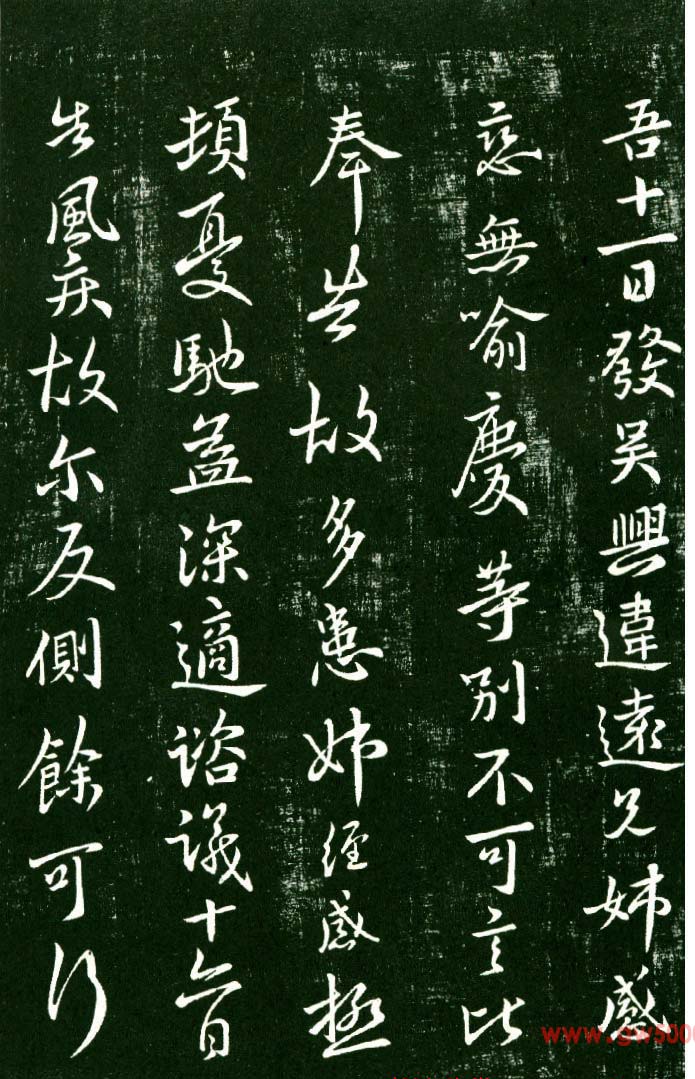 吾十一日發吳興違遠兄姊感
戀無喻慶等別不可言比
奉告故多患姊經感極
頓憂馳益深適諮議十六日
告風疾故尔反側餘可行
www.gw500